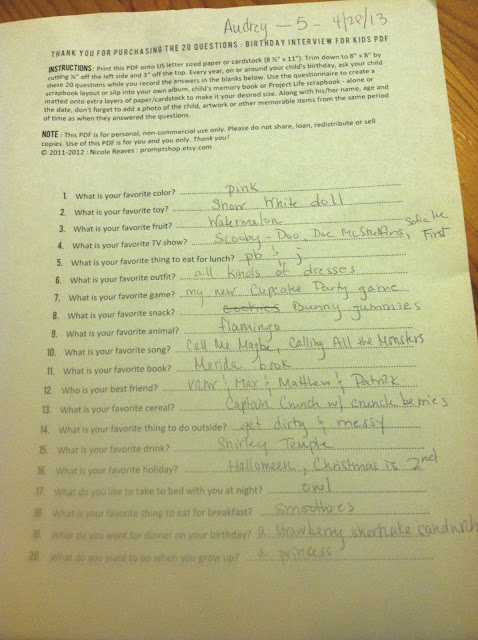 Audrey - 5 - 4/28/13
THANK YOU FOR PURCHASING THE 20 QUESTIONS : BIRTHDAY INTERVIEW FOR KIDS PDF
INSTRUCTIONS: Print this PDF onto US letter sized paper or cardstock (8 ½" x 11"). Trim down to 8" x 8" by
cutting ½" off the left side and 3" off the top. Every year, on or around your child's birthday, ask your child
these 20 questions while you record the answers in the blanks below. Use the questionnaire to create a
scrapbook layout or slip into your own album, child's memory book or Project Life scrapbook - alone or
matted onto extra layers of paper/cardstock to make it your desired size. Along with his/her name, age and
the date, don't forget to add a photo of the child, artwork or other memorable items from the same period
of time as when they answered the questions.
NOTE : This PDF is for personal, non-commercial use only. Please do not share, loan, redistribute or sell
copies. Use of this PDF is for you and you only. Thank you!
© 2011-2012 : Nicole Reaves : promptshop.etsy.com
1. What is your favorite color? pink
2. What is your favorite toy? Snow White doll
3. What is your favorite fruit? Watermelon
4. What is your favorite TV show? Scooby-Doo, Doc McStuffins, Sofia the First
5. What is your favorite thing to eat for lunch? pb & j
6. What is your favorite outfit? all kinds of dresses
7. What is your favorite game? my new Cupcake Party game
8. What is your favorite snack? cookies Bunny gummies
9. What is your favorite animal? flamingo
10. What is your favorite song? Call Me Maybe, Calling All the Monsters
11. What is your favorite book? Merida book
12. Who is your best friend? & Max & Matthew & Patrik
13. What is your favorite cereal? Captain Crunch w/ crunch berries
14. What is your favorite thing to do outside? get dirty & messy
15. What is your favorite drink? Shirley Temple
16. What is your favorite holiday? Halloween, Christmas is 2nd
17. What do you like to take to bed with you at night? owl
18. What is your favorite thing to eat for breakfast? smoothies
19. What do you want for dinner on your birthday? a strawberry shortcake sandwich
20. What do you want to up when you grow up? a princess